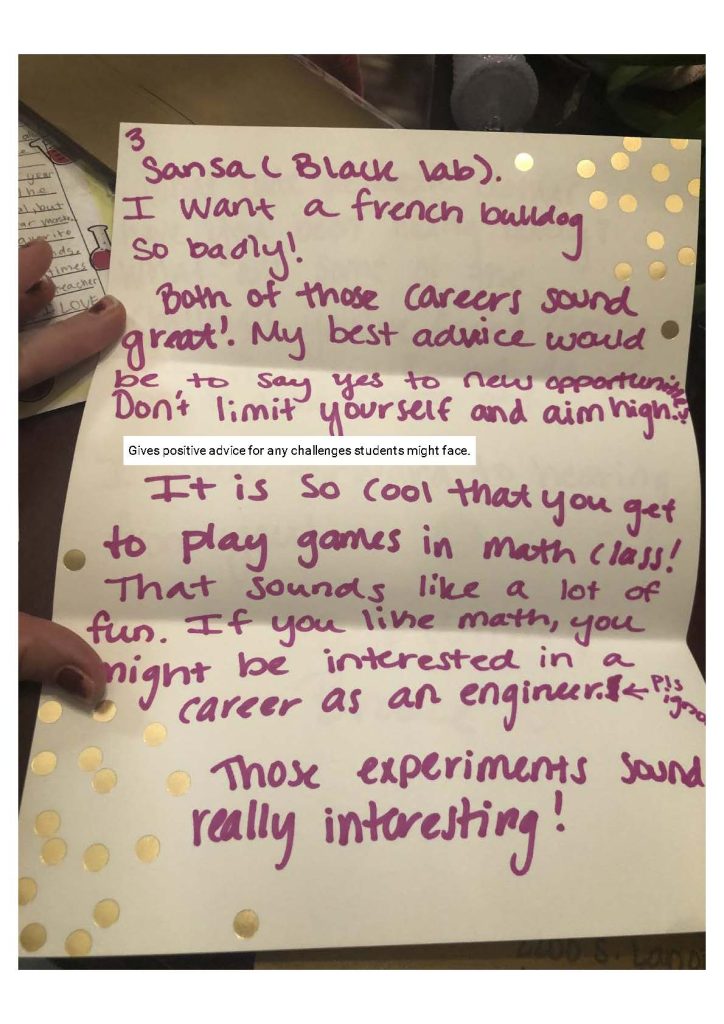 3
Sansa (Black lab).
I want a french bulldog
so badly!
Both of those careers sound
great! My best advice would
be, to say yes to new opportunities
Don't limit yourself and aim high!!
Gives positive advice for any challenges students might face.
It is so cool that you get
to play games in math class!
That sounds like a lot of
fun. If you like math, you
might be interested in a
career as an engineer. ← Pls
Those experiments sound
really interesting!
year
the
but
favorite
times
teacher
LOVE
2200 S.